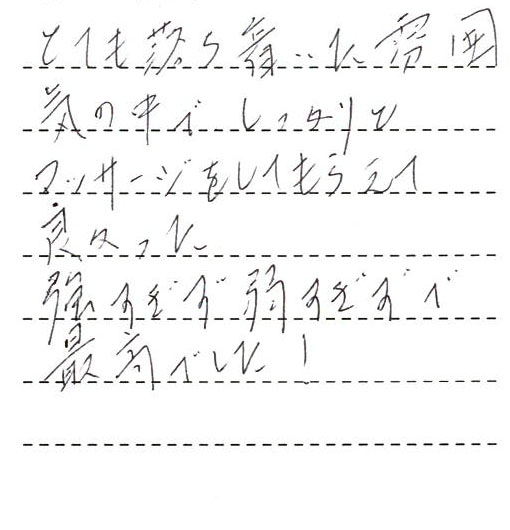 とても落ち着いた雰囲
気の中で しっかりと
マッサージをしてもらえて
良かった
強すぎず弱すぎずで
最高でした!